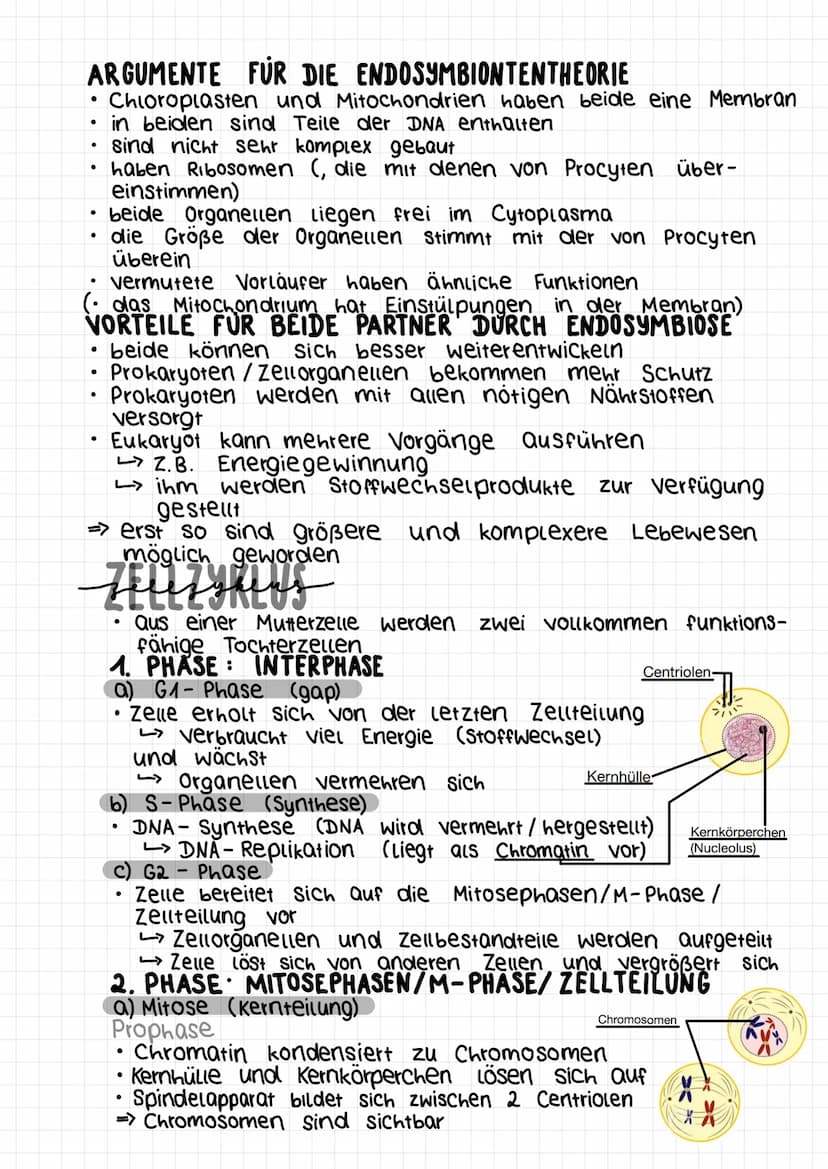 ARGUMENTE FÜR DIE ENDOSYMBIONTENTHEORIE
• Chloroplasten und Mitochondrien haben beide eine Membran
• in beiden sind Teile der DNA enthalten
• sind nicht sehr komplex gebaut
• haben Ribosomen (, die mit denen von Procyten über-
einstimmen)
• beide Organellen liegen frei im Cytoplasma
• die Größe der Organellen stimmt mit der von Procyten
überein
• vermutete Vorläufer haben ähnliche Funktionen
(• das Mitochondrium hat Einstülpungen in der Membran)
VORTEILE FÜR BEIDE PARTNER DURCH ENDOSYMBIOSE
• beide können sich besser weiterentwickeln
• Prokaryoten / Zellorganellen bekommen mehr Schutz
• Prokaryoten werden mit allen nötigen Nährstoffen
versorgt
• Eukaryot kann mehrere Vorgänge ausführen
↳ z.B. Energiegewinnung
↳ ihm werden Stoffwechselprodukte zur Verfügung
gestellt
⇒ erst so sind größere und komplexere Lebewesen
möglich geworden
ZELLZYKLUS
zellzyklus
• aus einer Mutterzelle werden zwei vollkommen funktions-
fähige Tochterzellen
1. PHASE: INTERPHASE
a) G1-Phase (gap)
• Zelle erholt sich von der letzten Zellteilung
↳ verbraucht viel Energie (Stoffwechsel)
und wächst
↳ Organellen vermehren sich
Centriolen
Kernhülle
Kernkörperchen
(Nucleolus)
b) S-Phase (Synthese)
• DNA-Synthese (DNA wird vermehrt / hergestellt)
↳ DNA-Replikation (liegt als Chromatin vor)
c) G2-Phase
• Zelle bereitet sich auf die Mitosephasen/M-Phase/
Zellteilung vor
↳ Zellorganellen und Zellbestandteile werden aufgeteilt
↳ Zelle löst sich von anderen Zellen und vergrößert sich
2. PHASE: MITOSEPHASEN/M-PHASE/ZELLTEILUNG
a) Mitose (Kernteilung)
Prophase
• Chromatin kondensiert zu Chromosomen
• Kernhülle und Kernkörperchen lösen sich auf
• Spindelapparat bildet sich zwischen 2 Centriolen
⇒ Chromosomen sind sichtbar
Chromosomen